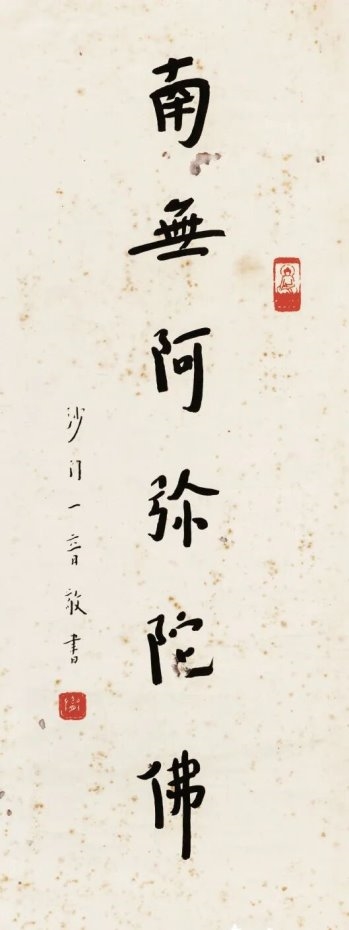 南無阿弥陀佛
沙门一音敬書